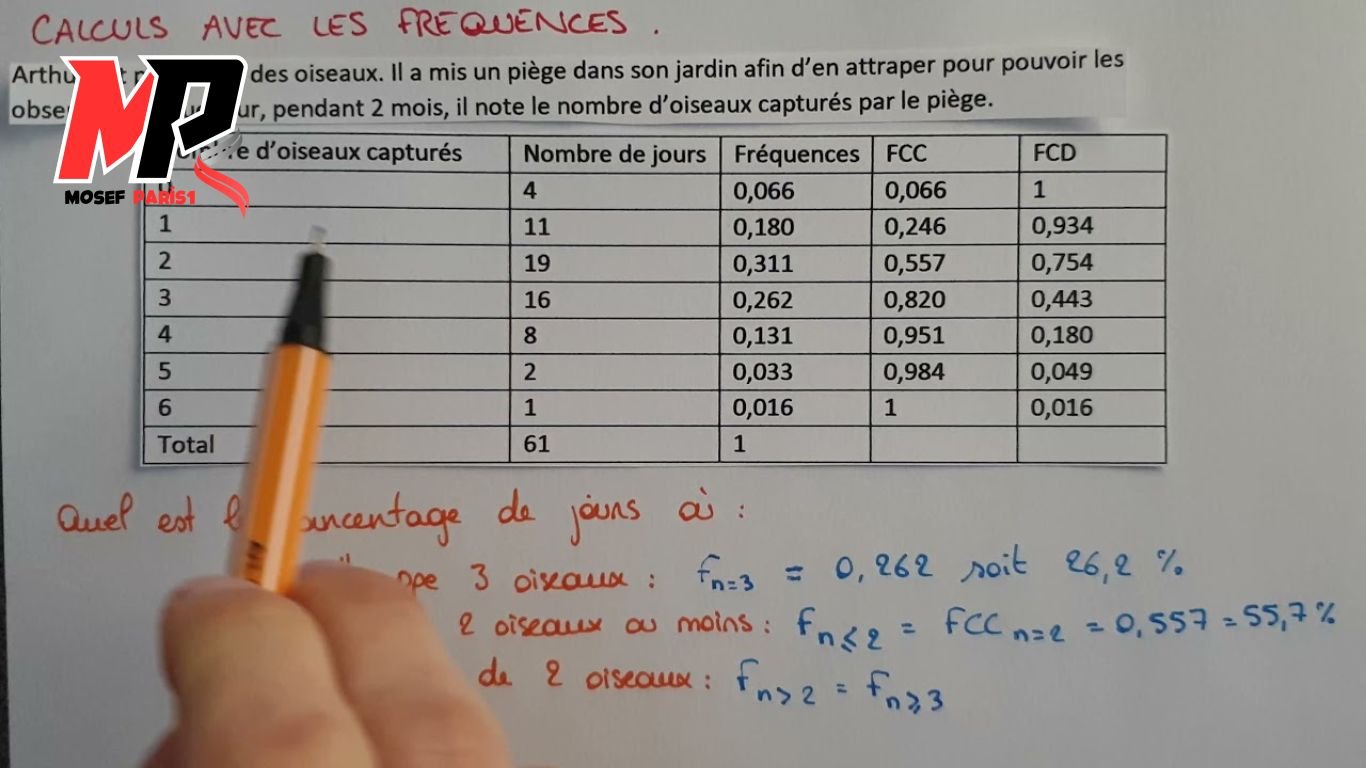 CALCULS AVEC LES FREQUENCES.
des oiseaux. Il a mis un piège dans son jardin afin d'en attraper pour pouvoir les
pendant 2 mois, il note le nombre d'oiseaux capturés par le piège.
MP
MOSEF PARIS1
d'oiseaux capturés Nombre de jours Fréquences FCC FCD
4 0,066 0,066 1
1 11 0,180 0,246 0,934
2 19 0,311 0,557 0,754
3 16 0,262 0,820 0,443
4 8 0,131 0,951 0,180
5 2 0,033 0,984 0,049
6 1 0,016 1 0,016
Total 61 1
Quel est de jours où :
3 oiseaux : f n=3 = 0,262 soit 26,2 %
2 oiseaux ou moins : f n⩽2 = FCC n=2 = 0,557 = 55,7 %
de 2 oiseaux : f n>2 = f n⩾3